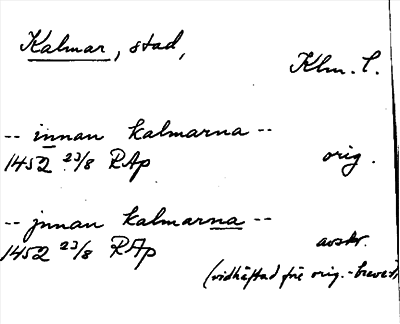 Kalmar, stad,
Klm. l.
-- innan kalmarna --
1452 23/8 RAp orig.
-- jnnan kalmarna --
1452 23/8 RAp avskr.
(vidhäftad före orig.-brevet)